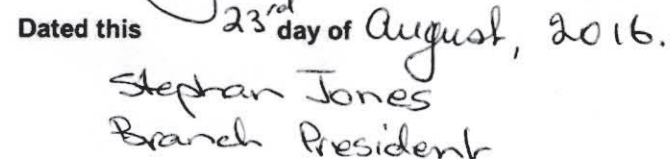 Dated this 23rd day of August, 2016.
Stephan Jones
Branch President